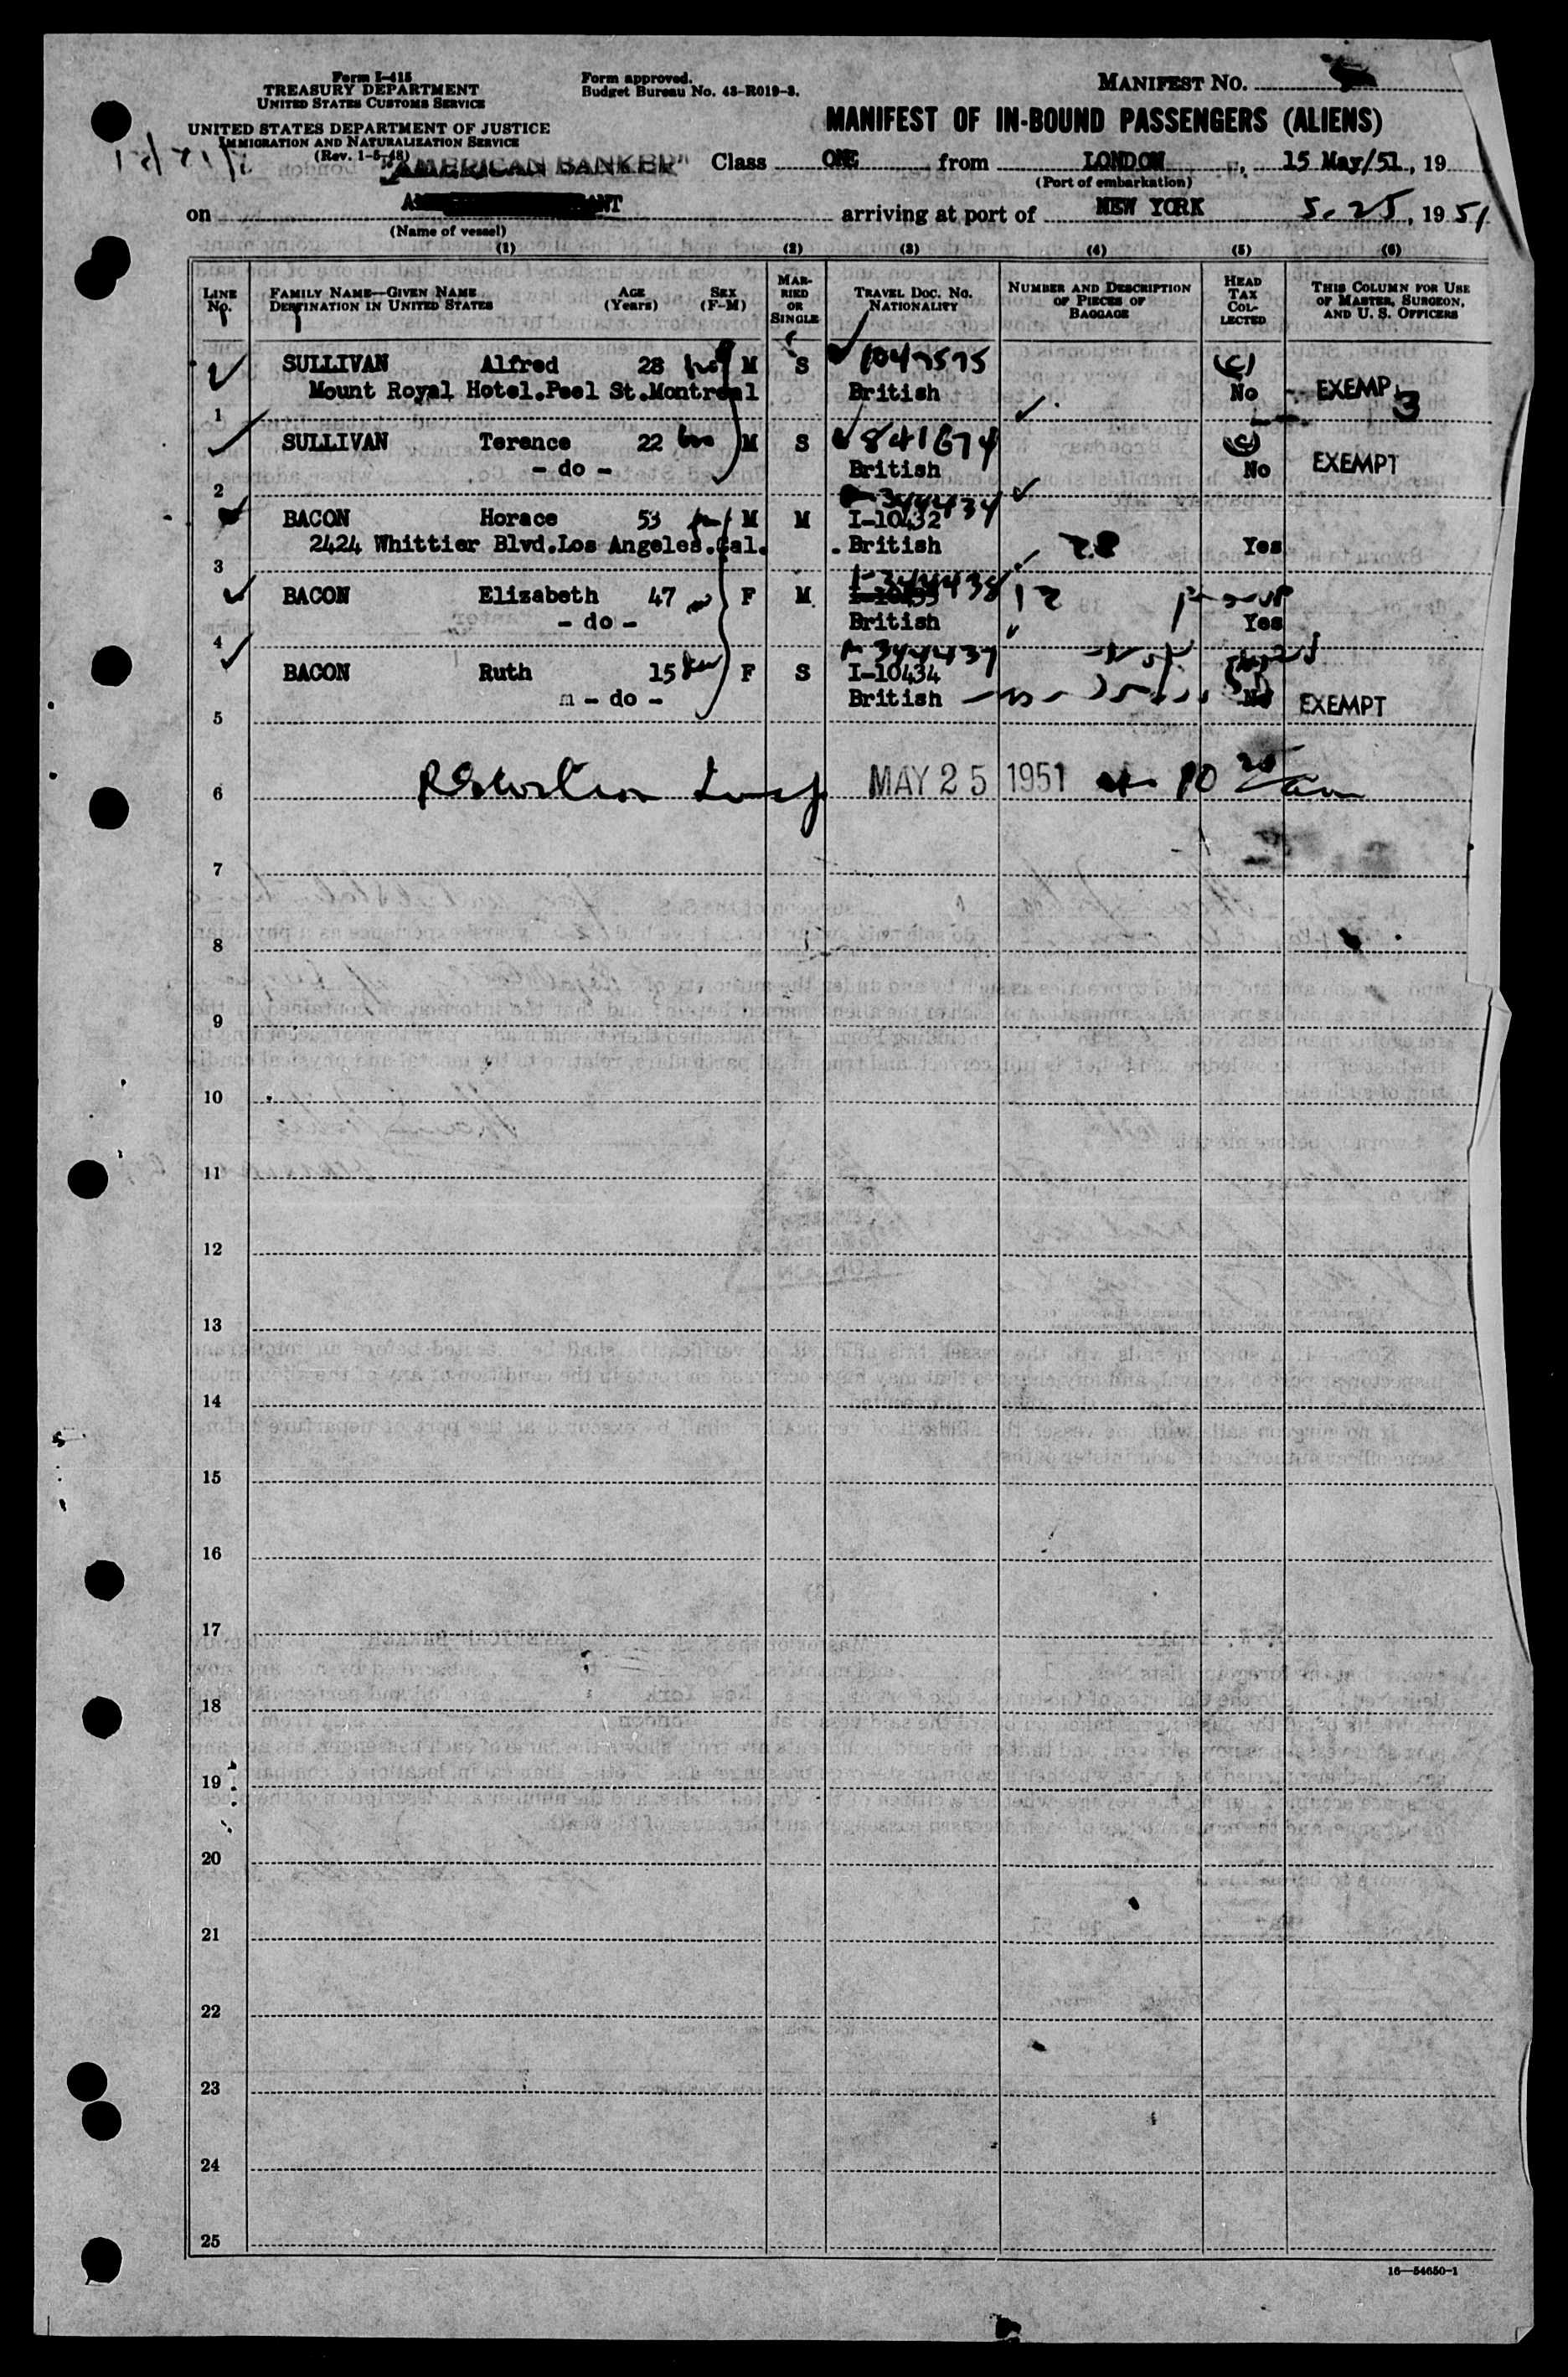 Form I-415
TREASURY DEPARTMENT
UNITED STATES CUSTOMS SERVICE
UNITED STATES DEPARTMENT OF JUSTICE
IMMIGRATION AND NATURALIZATION SERVICE
(Rev. 1-5-48)
Form approved.
Budget Bureau No. 43-R019-3.
MANIFEST NO.
MANIFEST OF IN-BOUND PASSENGERS (ALIENS)
"AMERICAN BANKER" Class ONE from LONDON, 15 May/51, 19
(Port of embarkation)
on arriving at port of NEW YORK 5.25, 1951
(Name of vessel)
(1) (2) (3) (4) (5) (6)
LINE No. FAMILY NAME—GIVEN NAME DESTINATION IN UNITED STATES AGE (Years) SEX (F-M) MARRIED OR SINGLE TRAVEL DOC. NO. NATIONALITY NUMBER AND DESCRIPTION OF PIECES OF BAGGAGE HEAD TAX COLLECTED THIS COLUMN FOR USE OF MASTER, SURGEON, AND U. S. OFFICERS
SULLIVAN Alfred 28 M S 1047575
Mount Royal Hotel.Peel St.Montreal British No EXEMP 3
1
SULLIVAN Terence 22 M S 841674
- do - British No EXEMPT
2
3444434
BACON Horace 53 M M I-10432
2424 Whittier Blvd.Los Angeles.Cal. British Yes
3
3444438
BACON Elizabeth 47 F M I-10433 12
- do - British Yes
4
3444437
BACON Ruth 15 F S I-10434
- do - British No EXEMPT
5
6 MAY 25 1951 10 am
7
8
9
10
11
12
13
14
15
16
17
18
19
20
21
22
23
24
25
16—54650-1